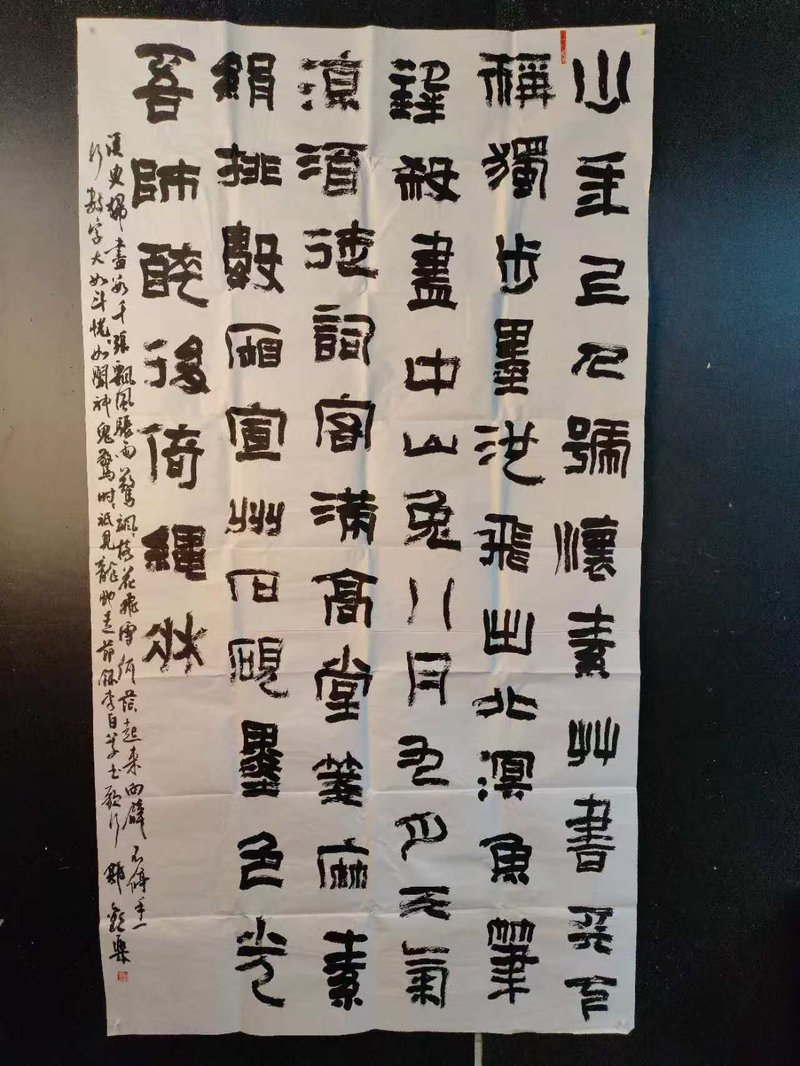 少年上人號懷素草書天下
稱獨步墨池飛出北溟魚筆
鋒殺盡中山兔八月九月天氣
涼酒徒詞客滿高堂箋麻素
絹排數廂宣州石硯墨色光
吾師醉後倚繩牀
須臾掃盡數千張飄風驟雨驚颯々落花飛雪何茫々起来向壁不停手一
行數字大如斗恍々如聞神鬼驚时々祗見龍蛇走節錄李白草书歌行